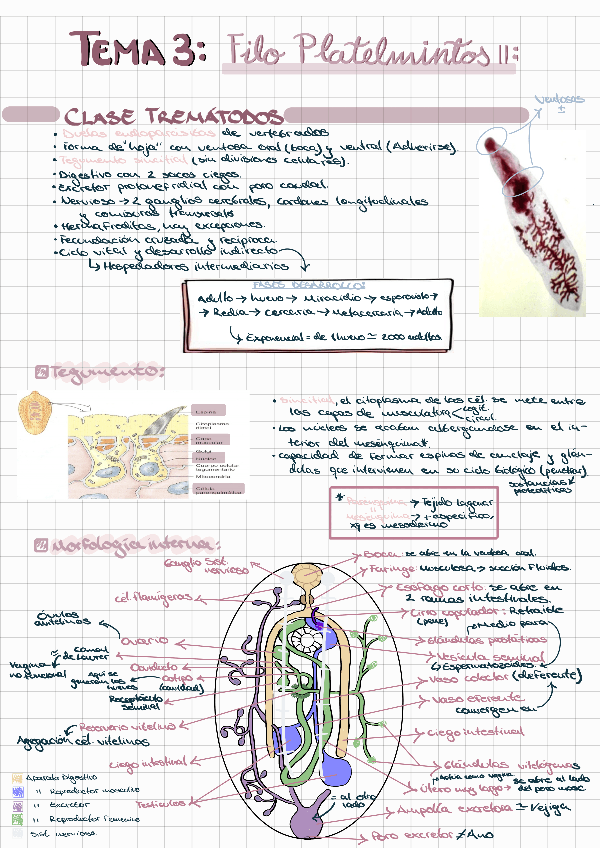 TEMA 3: Filo Platelmintos II:
CLASE TREMÁTODOS
Ventosas
• Duelas endoparásitas de vertebrados
• Forma de "hoja" con ventosa oral (boca) y ventral (Adherirse).
• Tegumento sincitial (sin divisiones celulares).
• Digestivo con 2 sacos ciegos.
• Excretor protonefridial con poro caudal.
• Nervioso → 2 ganglios cerebrales, cordones longitudinales
y comisuras transversales
• Hermafroditas, hay excepciones.
• Fecundación cruzada y recíproca.
• Ciclo vital y desarrollo indirecto
↳ Hospedadores intermediarios
FASES DESARROLLO:
Adulto → huevo → Miracidio → esporocisto →
→ Redia → cercaria → Metacercaria → Adulto
↳ Exponencial = de 1 huevo ≃ 2000 adultos
Tegumento:
• Sincitial, el citoplasma de las cél. se mete entre
las capas de musculatura < longit. circul.
• Los núcleos se acaban albergándose en el in-
terior del mesénquima*.
• capacidad de formar espinas de anclaje y glán-
dulas que intervienen en su ciclo biológico (penetrar)
sustancias
proteolíticas
* Parénquima → Tejido lagunar
mesénquima → + específico,
xq es mesodermo
Morfología interna:
Ganglio Sist.
nervioso
Boca: se abre en la ventosa oral.
Faringe: musculosa → succión fluidos.
Esófago corto: se abre en
2 ramas intestinales.
cél. flamígeras
Cirro copulador: Retraíble
(pene)
Medio para
Óvulos
Ovario
Glándulas prostáticas
≃ canal
de Laurer
Vesícula seminal
↳ Espermatozoides.
Vagina
no funcional
Oviducto
Aquí se
generan los
huevos
ootipo
(cavidad)
Vaso colector (deferente)
Receptáculo
seminal
Vaso eferente
convergen en
Reservorio vitelino
Agregación cél. vitelinas
Ciego intestinal
Ciego intestinal
Glándulas vitelógenas
Actúa como vagina
se abre al lado
del poro masc.
Útero muy largo
Testículos
= al otro
lado
Ampolla excretora ≃ Vejiga
Poro excretor ≠ Ano
Aparato Digestivo
" Reproductor masculino
" Excretor
" Reproductor Femenino
Sist. nervioso